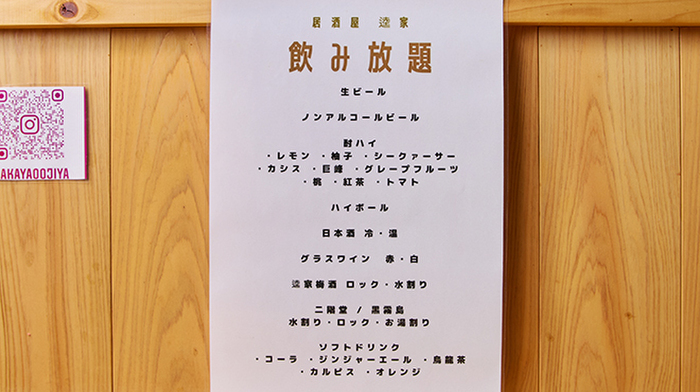 居酒屋 逵家
飲み放題
生ビール
ノンアルコールビール
酎ハイ
・レモン ・柚子 ・シークァーサー
・カシス ・巨峰 ・グレープフルーツ
・桃 ・紅茶 ・トマト
ハイボール
日本酒 冷・温
グラスワイン 赤・白
逵家梅酒 ロック・水割り
二階堂 / 黒霧島
水割り・ロック・お湯割り
ソフトドリンク
・コーラ ・ジンジャーエール ・烏龍茶
・カルピス ・オレンジ
AKAYAOOJIYA